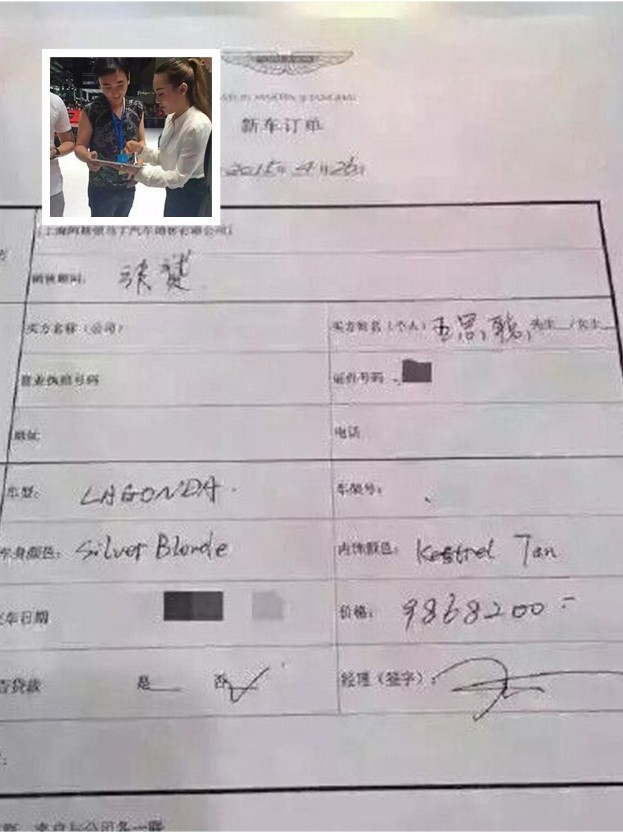 ASTON MARTIN SHANGHAI
新车订单
2015年4月26日
(上海阿斯顿马丁汽车销售有限公司)
销售顾问:
买方名称（公司） 买方姓名（个人）王思聪 先生 /女士
营业执照号码 证件号码
地址 电话
车型: LAGONDA. 车架号:
车身颜色: Silver Blonde 内饰颜色: Kestrel Tan
交车日期 价格: 9868200-
否贷款 是 否✓ 经理（签字）:
客户与公司各一联